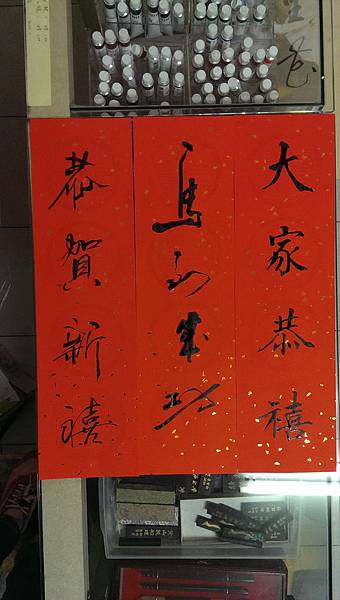 大家恭禧
馬到成功
恭賀新禧